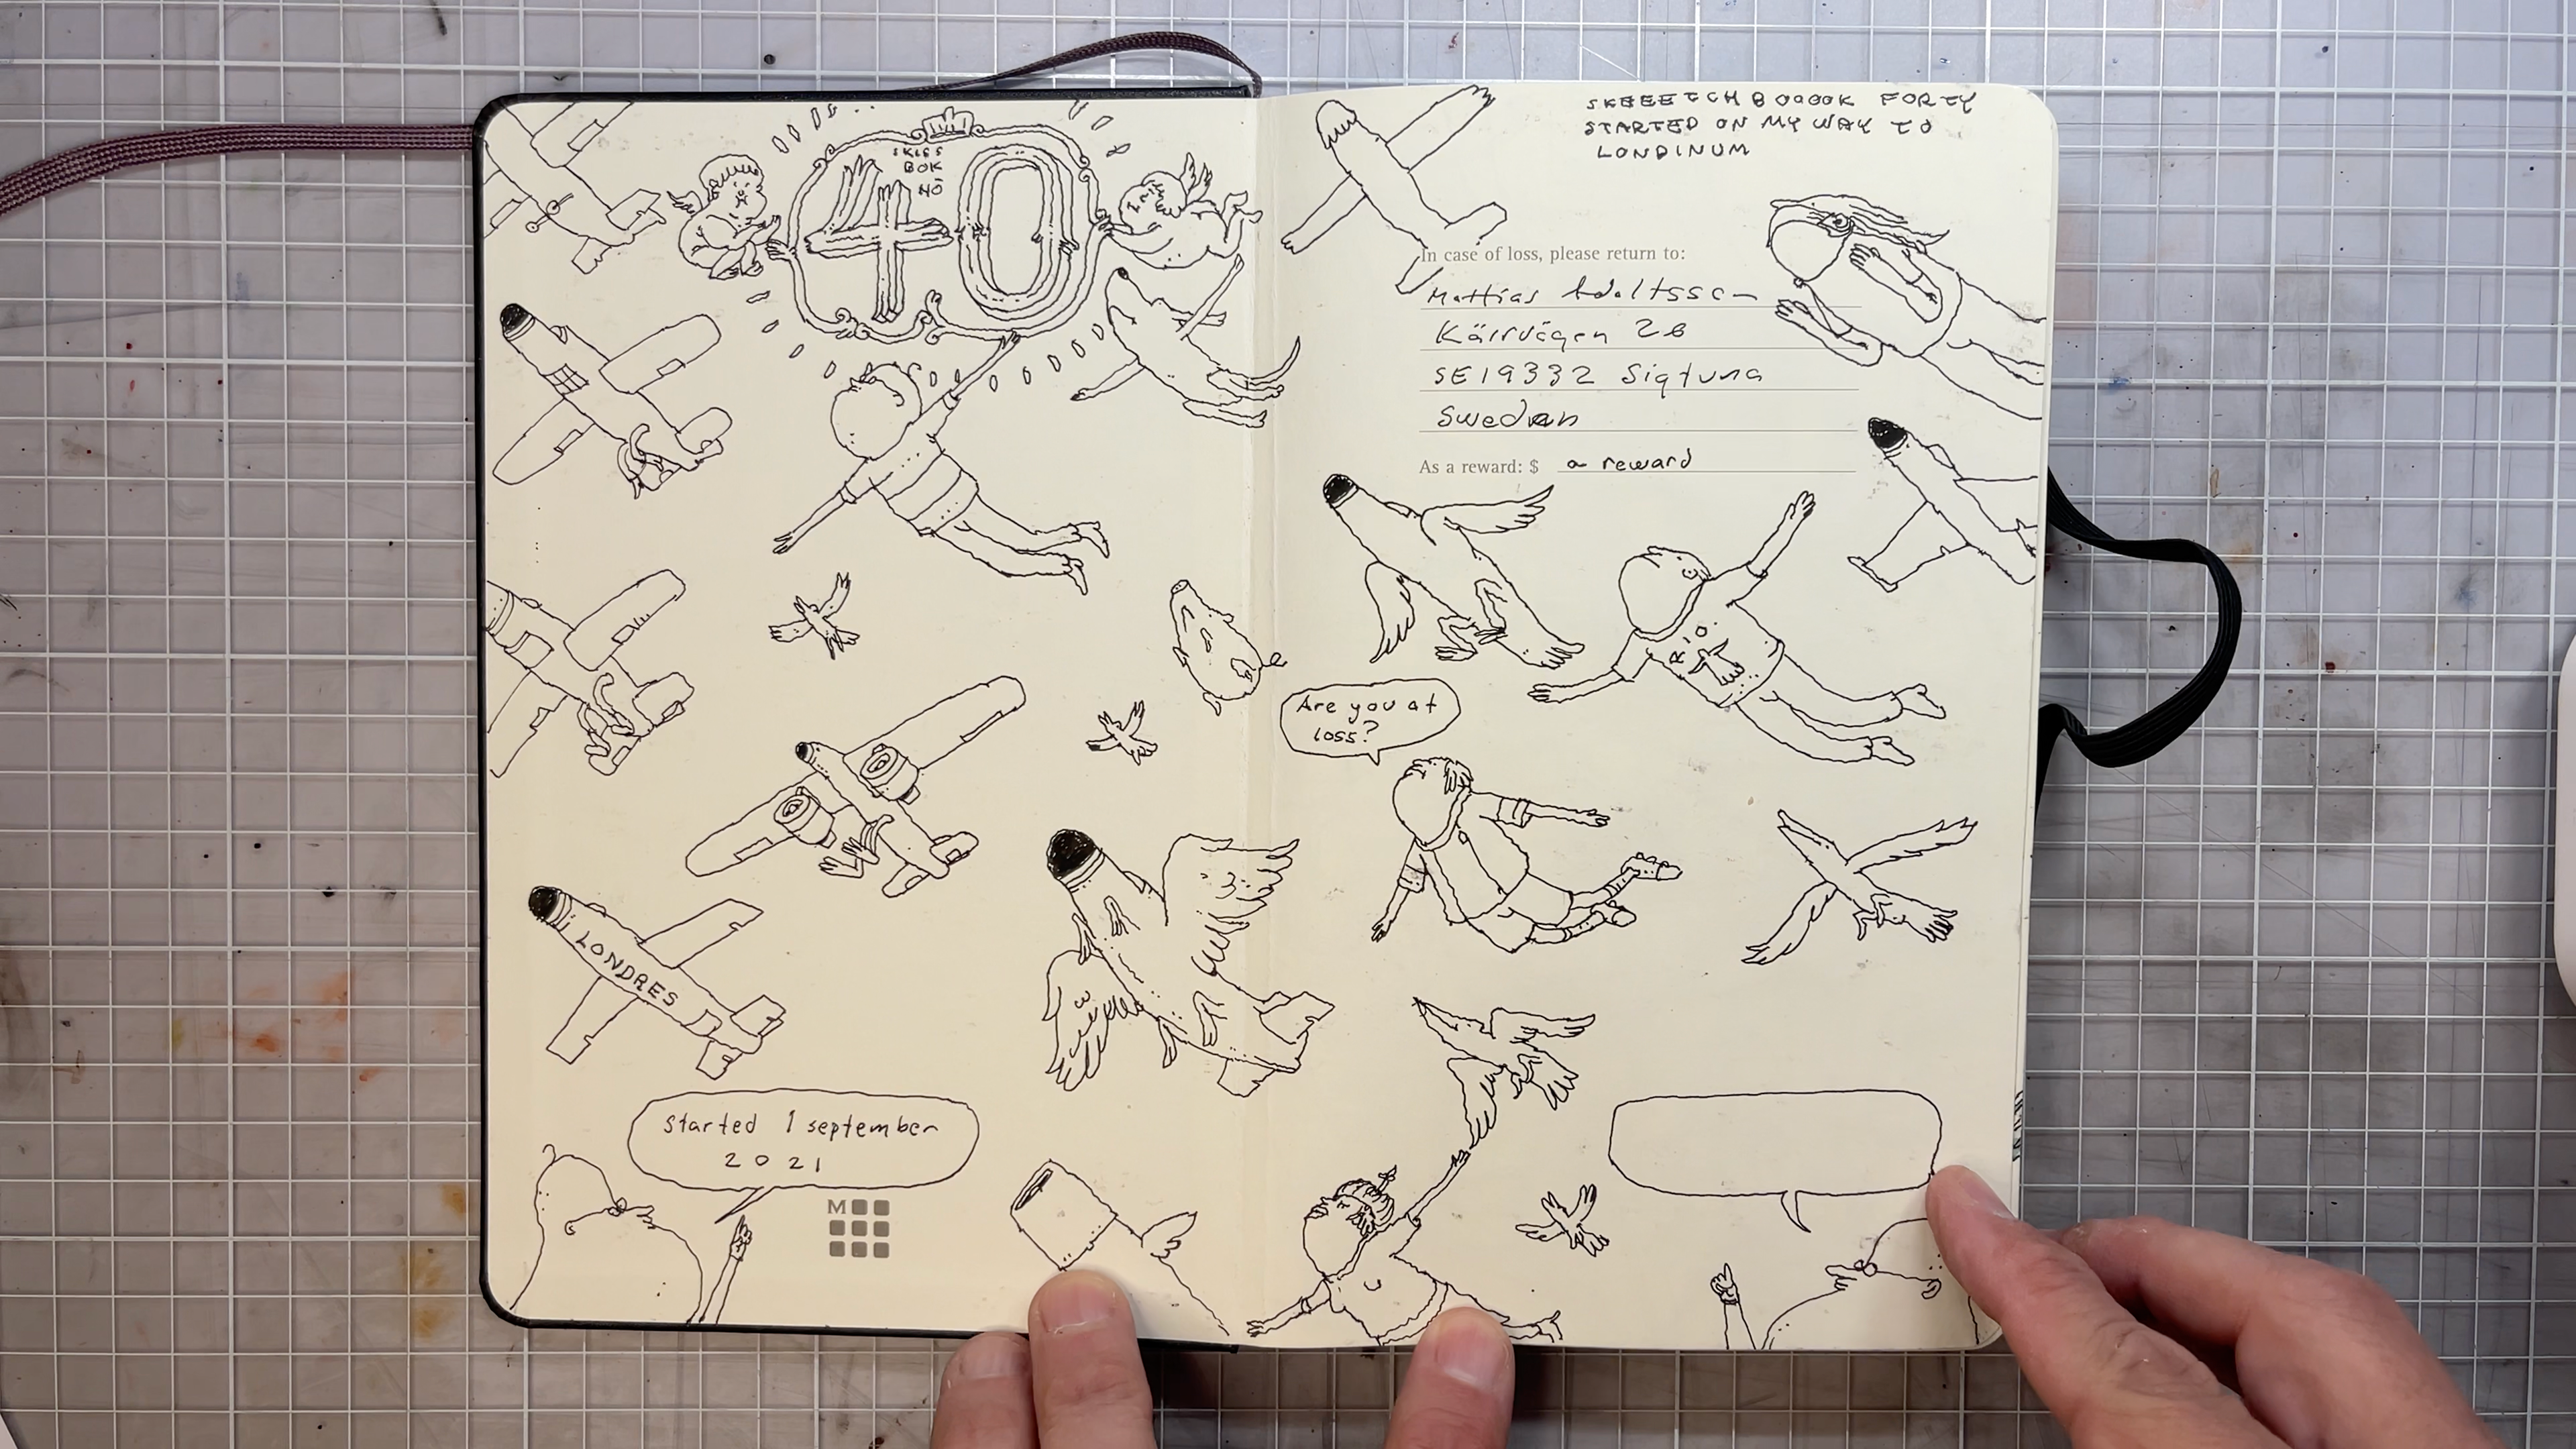 SKISS
BOK
NO
40
SKEEETCHBOOOOK FORTY
STARTED ON MY WAY TO
LONDINUM
In case of loss, please return to:
Mattias Adolfsson
Kärrvägen 26
SE19332 Sigtuna
Sweden
As a reward: $ a reward
RIO
Are you at
loss?
LONDRES
Started 1 september
2021
M